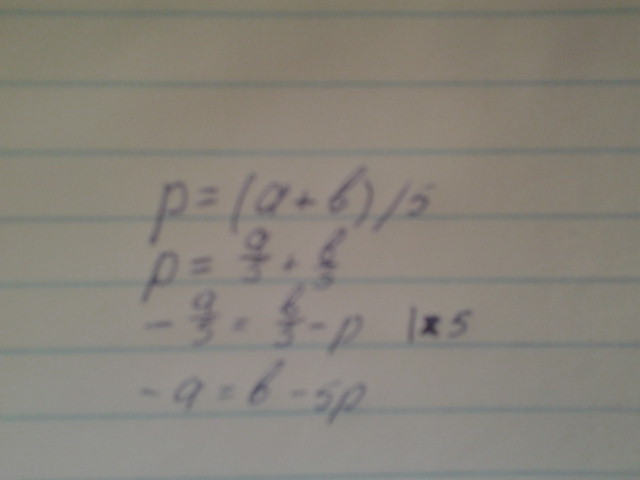 p = (a + b) / 5
p = a/5 + b/5
- a/5 = b/5 - p | x 5
- a = b - 5p